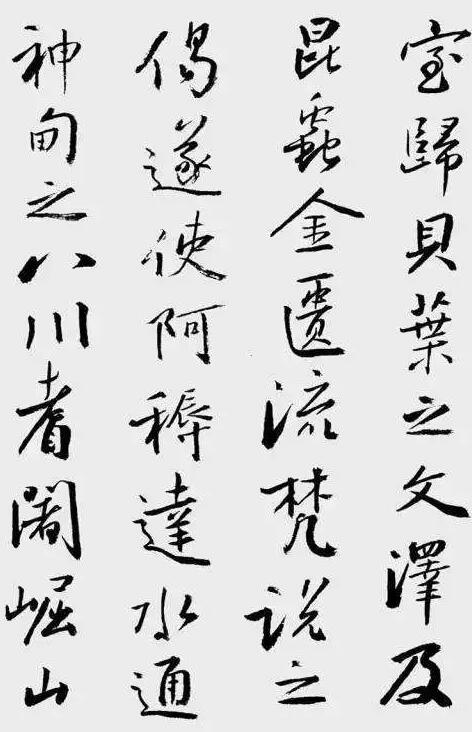 室歸貝葉之文澤及
昆蟲金匱流梵說之
偈遂使阿耨達水通
神甸之八川耆闍崛山